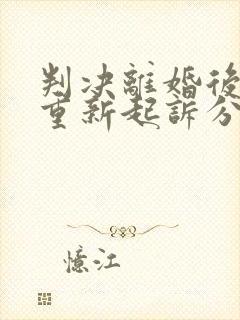 判决離婚後
重新起訴分
憶江